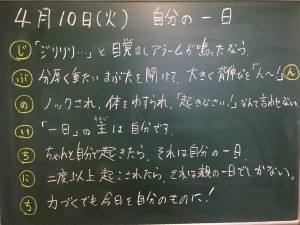 4月10日(火) 自分の一日
じ 「ジリリリ…」と目覚ましアラームが鳴ったなら、
ぶ 分厚く重たいまぶたを開けて、大きく背伸びを「ん〜」ん
の ノックされ、体をゆすられ、「起きなさい!」なんて言わせない
い 「一日」の主は自分です。
ち ちゃんと自分で起きたら、それは自分の一日、
に 二度以上起こされたら、それは親の一日でしかない。
ち 力づくでも今日を自分のものに!